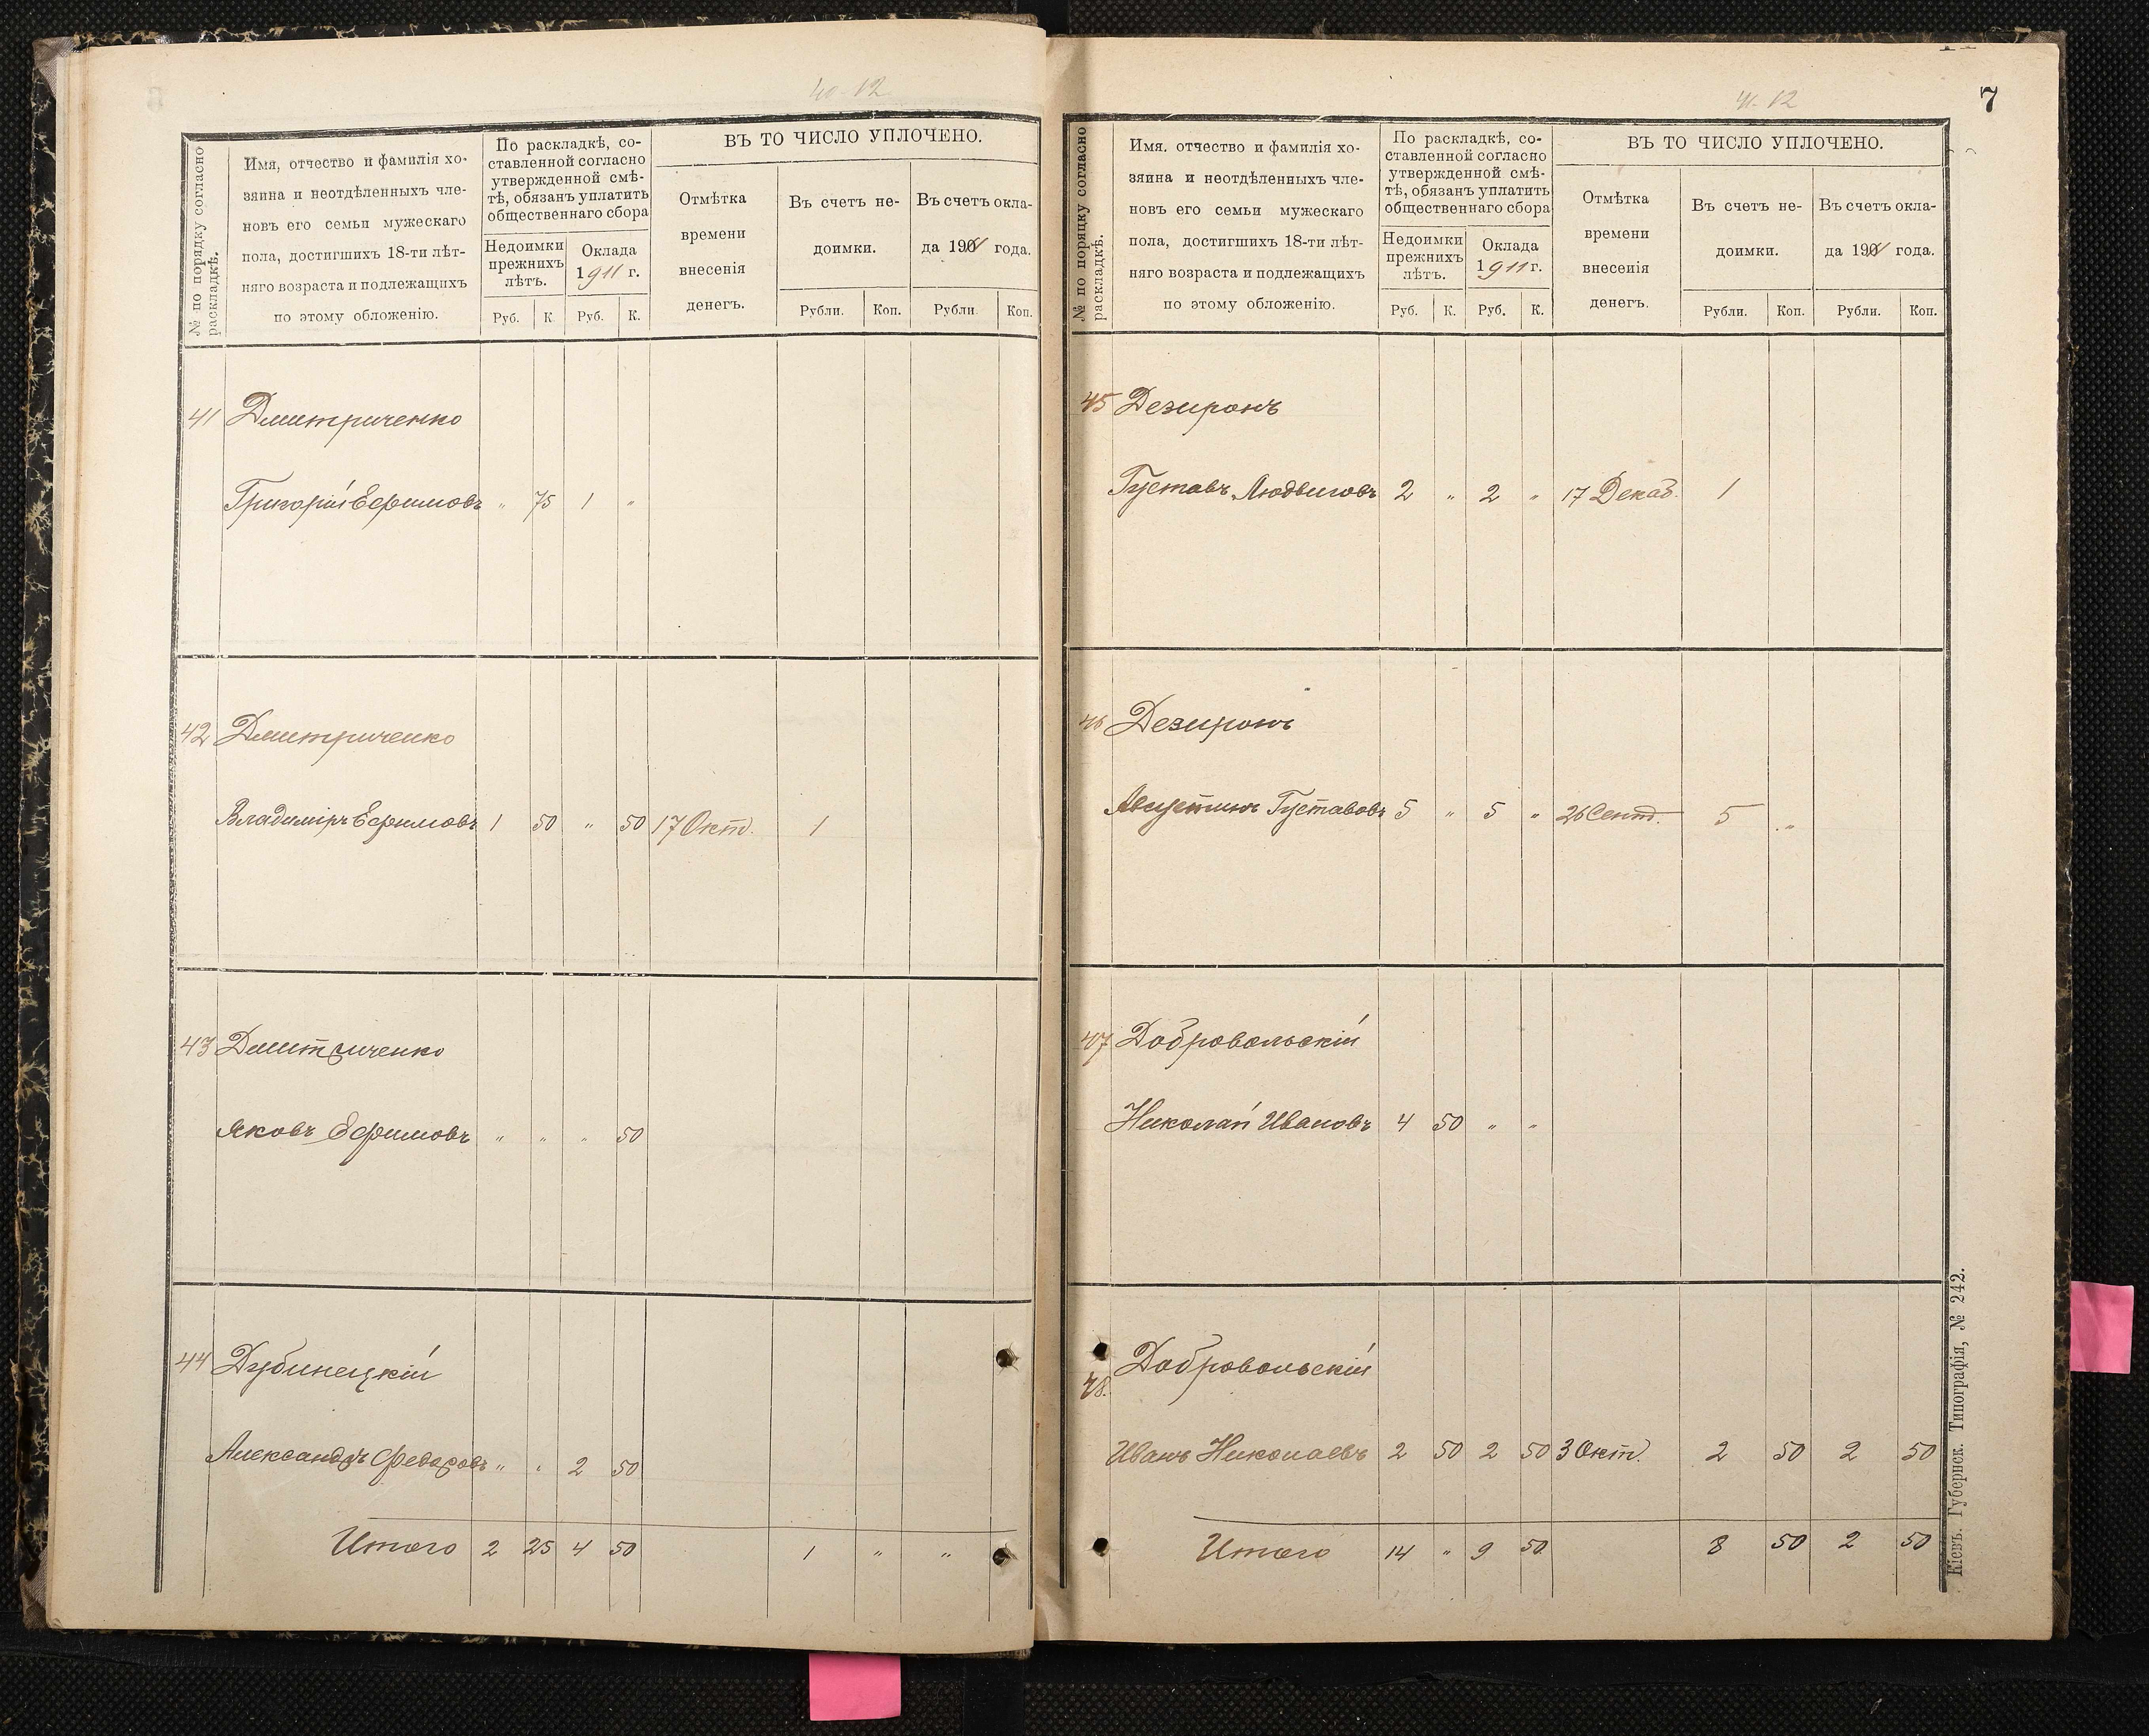 40-12
№ по порядку согласно
раскладкѣ.
Имя, отчество и фамилія хо-
зяина и неотдѣленныхъ чле-
новъ его семьи мужескаго
пола, достигшихъ 18-ти лѣт-
няго возраста и подлежащихъ
по этому обложенію.
По раскладкѣ, со-
ставленной согласно
утвержденной смѣ-
тѣ, обязанъ уплатить
общественнаго сбора
Недоимки
прежнихъ
лѣтъ.
Оклада
1911 г.
Руб. К. Руб. К.
ВЪ ТО ЧИСЛО УПЛОЧЕНО.
Отмѣтка
времени
внесенія
денегъ.
Въ счетъ не-
доимки.
Рубли. Коп.
Въ счетъ окла-
да 190 года.
Рубли. Коп.
41 Дмитриченко
Григорій Ефимовъ " 75 1 "
42 Дмитриченко
Владиміръ Ефимовъ 1 50 " 50 17 Окт. 1
43 Дмитриченко
Яковъ Ефимовъ " " " 50
44 Дубинецкій
Александръ Федоровъ " " 2 50
Итого 2 25 4 50 1 " "
41-12
7
№ по порядку согласно
раскладкѣ.
Имя. отчество и фамилія хо-
зяина и неотдѣленныхъ чле-
новъ его семьи мужескаго
пола, достигшихъ 18-ти лѣт-
няго возраста и подлежащихъ
по этому обложенію.
По раскладкѣ, со-
ставленной согласно
утвержденной смѣ-
тѣ, обязанъ уплатить
общественнаго сбора
Недоимки
прежнихъ
лѣтъ.
Оклада
1911 г.
Руб. К. Руб. К.
ВЪ ТО ЧИСЛО УПЛОЧЕНО.
Отмѣтка
времени
внесенія
денегъ.
Въ счетъ не-
доимки.
Рубли. Коп.
Въ счетъ окла-
да 190 года.
Рубли. Коп.
45 Дезиронъ
Густавъ Людвиговъ 2 " 2 " 17 Декаб. 1
46 Дезиронъ
Августинъ Густавовъ 5 " 5 " 26 Сент. 5 "
47 Добровольскій
Николай Ивановъ 4 50 " "
48. Добровольскій
Иванъ Николаевъ 2 50 2 50 3 Окт. 2 50 2 50
Итого 14 " 9 50 8 50 2 50
Кіевъ. Губернск. Типографія, № 242.